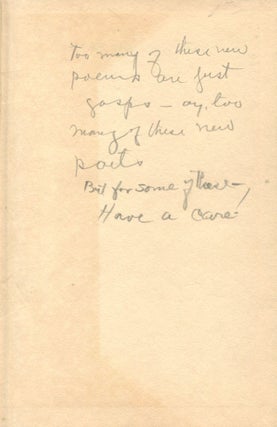 Too many of these new
poems are just
gasps – ay, too
many of these new
poets
But for some of these –,
Have a care.